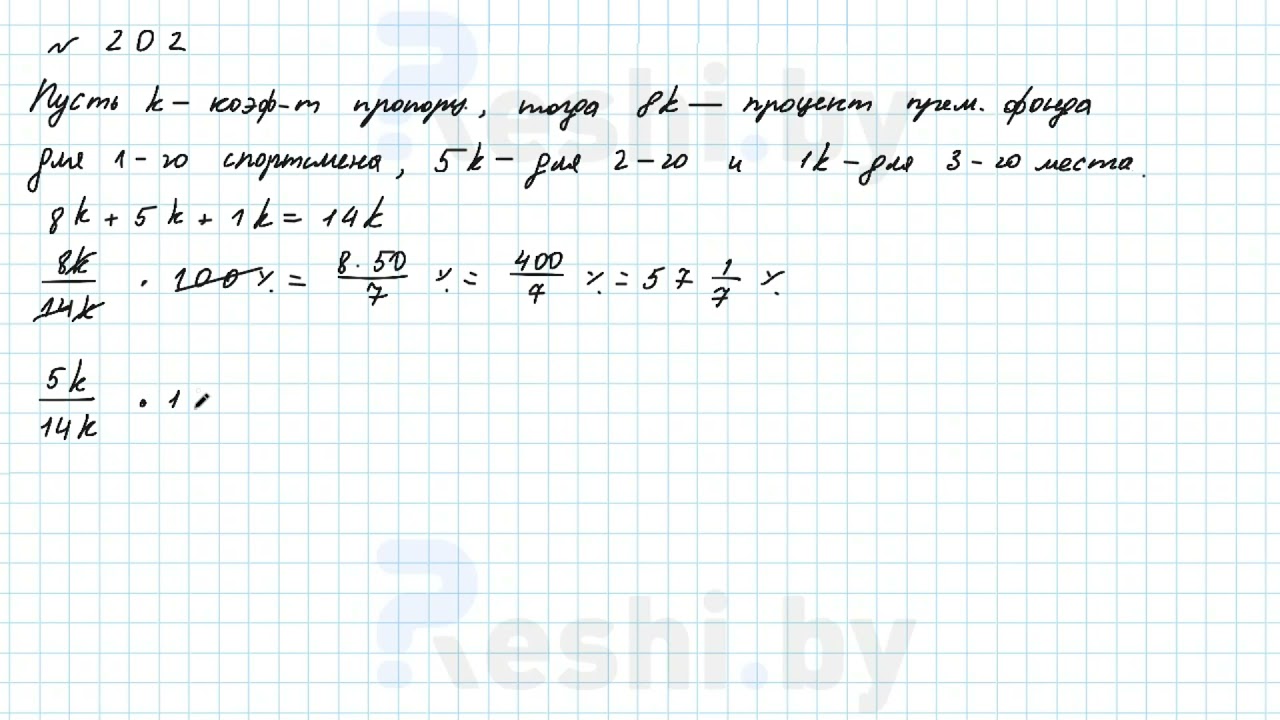 № 202
Пусть k – коэф-т пропорц., тогда 8k — процент прем. фонда
для 1-го спортсмена, 5k – для 2-го и 1k – для 3-го места.
8k + 5k + 1k = 14k
8k/14k · 100% = 8·50/7 % = 400/7 % = 57 1/7 %
5k/14k · 1
Reshi.by
Reshi.by